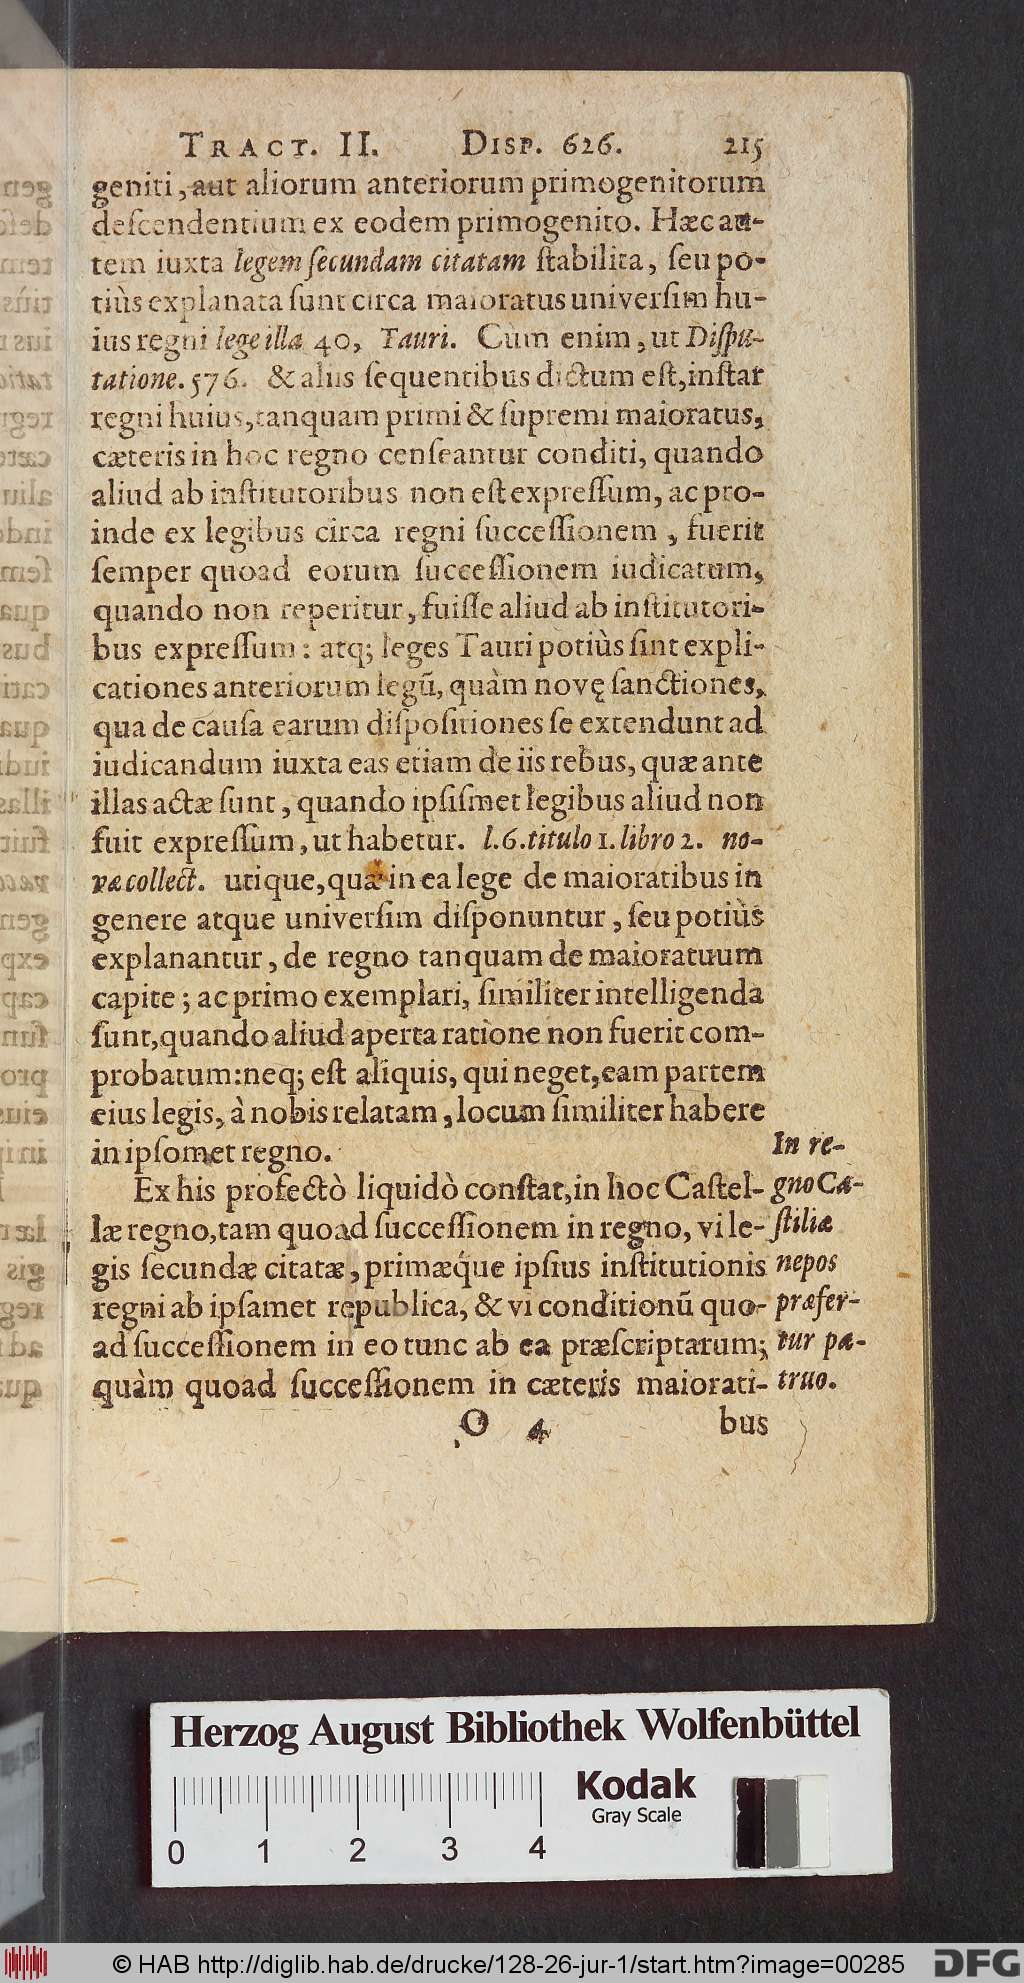 TRACT. II. DISP. 626. 215
geniti, aut aliorum anteriorum primogenitorum
deſcendentium ex eodem primogenito. Hæc au-
tem iuxta legem ſecundam citatam ſtabilita, ſeu po-
tiùs explanata ſunt circa maioratus univerſim hu-
ius regni lege illa 40, Tauri. Cùm enim, ut Diſpu-
tatione. 576. & aliis ſequentibus dictum eſt, inſtar
regni huius, tanquam primi & ſupremi maioratus,
cæteris in hoc regno cenſeantur conditi, quando
aliud ab inſtitutoribus non eſt expreſſum, ac pro-
inde ex legibus circa regni ſucceſſionem, fuerit
ſemper quoad eorum ſucceſſionem iudicatum,
quando non reperitur, fuiſſe aliud ab inſtitutori-
bus expreſſum: atq; leges Tauri potiùs ſint expli-
cationes anteriorum legũ, quàm novę ſanctiones,
qua de cauſa earum diſpoſitiones ſe extendunt ad
iudicandum iuxta eas etiam de iis rebus, quæ ante
illas actæ ſunt, quando ipſiſmet legibus aliud non
fuit expreſſum, ut habetur. l. 6. titulo 1. libro 2. no-
væ collect. utique, quæ in ea lege de maioratibus in
genere atque univerſim diſponuntur, ſeu potiùs
explanantur, de regno tanquam de maioratuum
capite; ac primo exemplari, ſimiliter intelligenda
ſunt, quando aliud aperta ratione non fuerit com-
probatum: neq; eſt aliquis, qui neget, eam partem
eius legis, à nobis relatam, locum ſimiliter habere
in ipſomet regno.
Ex his profectò liquidò conſtat, in hoc Caſtel-
læ regno, tam quoad ſucceſſionem in regno, vi le-
gis ſecundæ citatæ, primæq́ue ipſius inſtitutionis
regni ab ipſamet republica, & vi conditionũ quo-
ad ſucceſſionem in eo tunc ab ea præſcriptarum;
quàm quoad ſucceſſionem in cæteris maiorati-
In re-
gno Ca-
ſtiliæ
nepos
præfer-
tur pa-
truo.
O 4 bus
Herzog August Bibliothek Wolfenbüttel
Kodak
Gray Scale
0 1 2 3 4
© HAB http://diglib.hab.de/drucke/128-26-jur-1/start.htm?image=00285
DFG